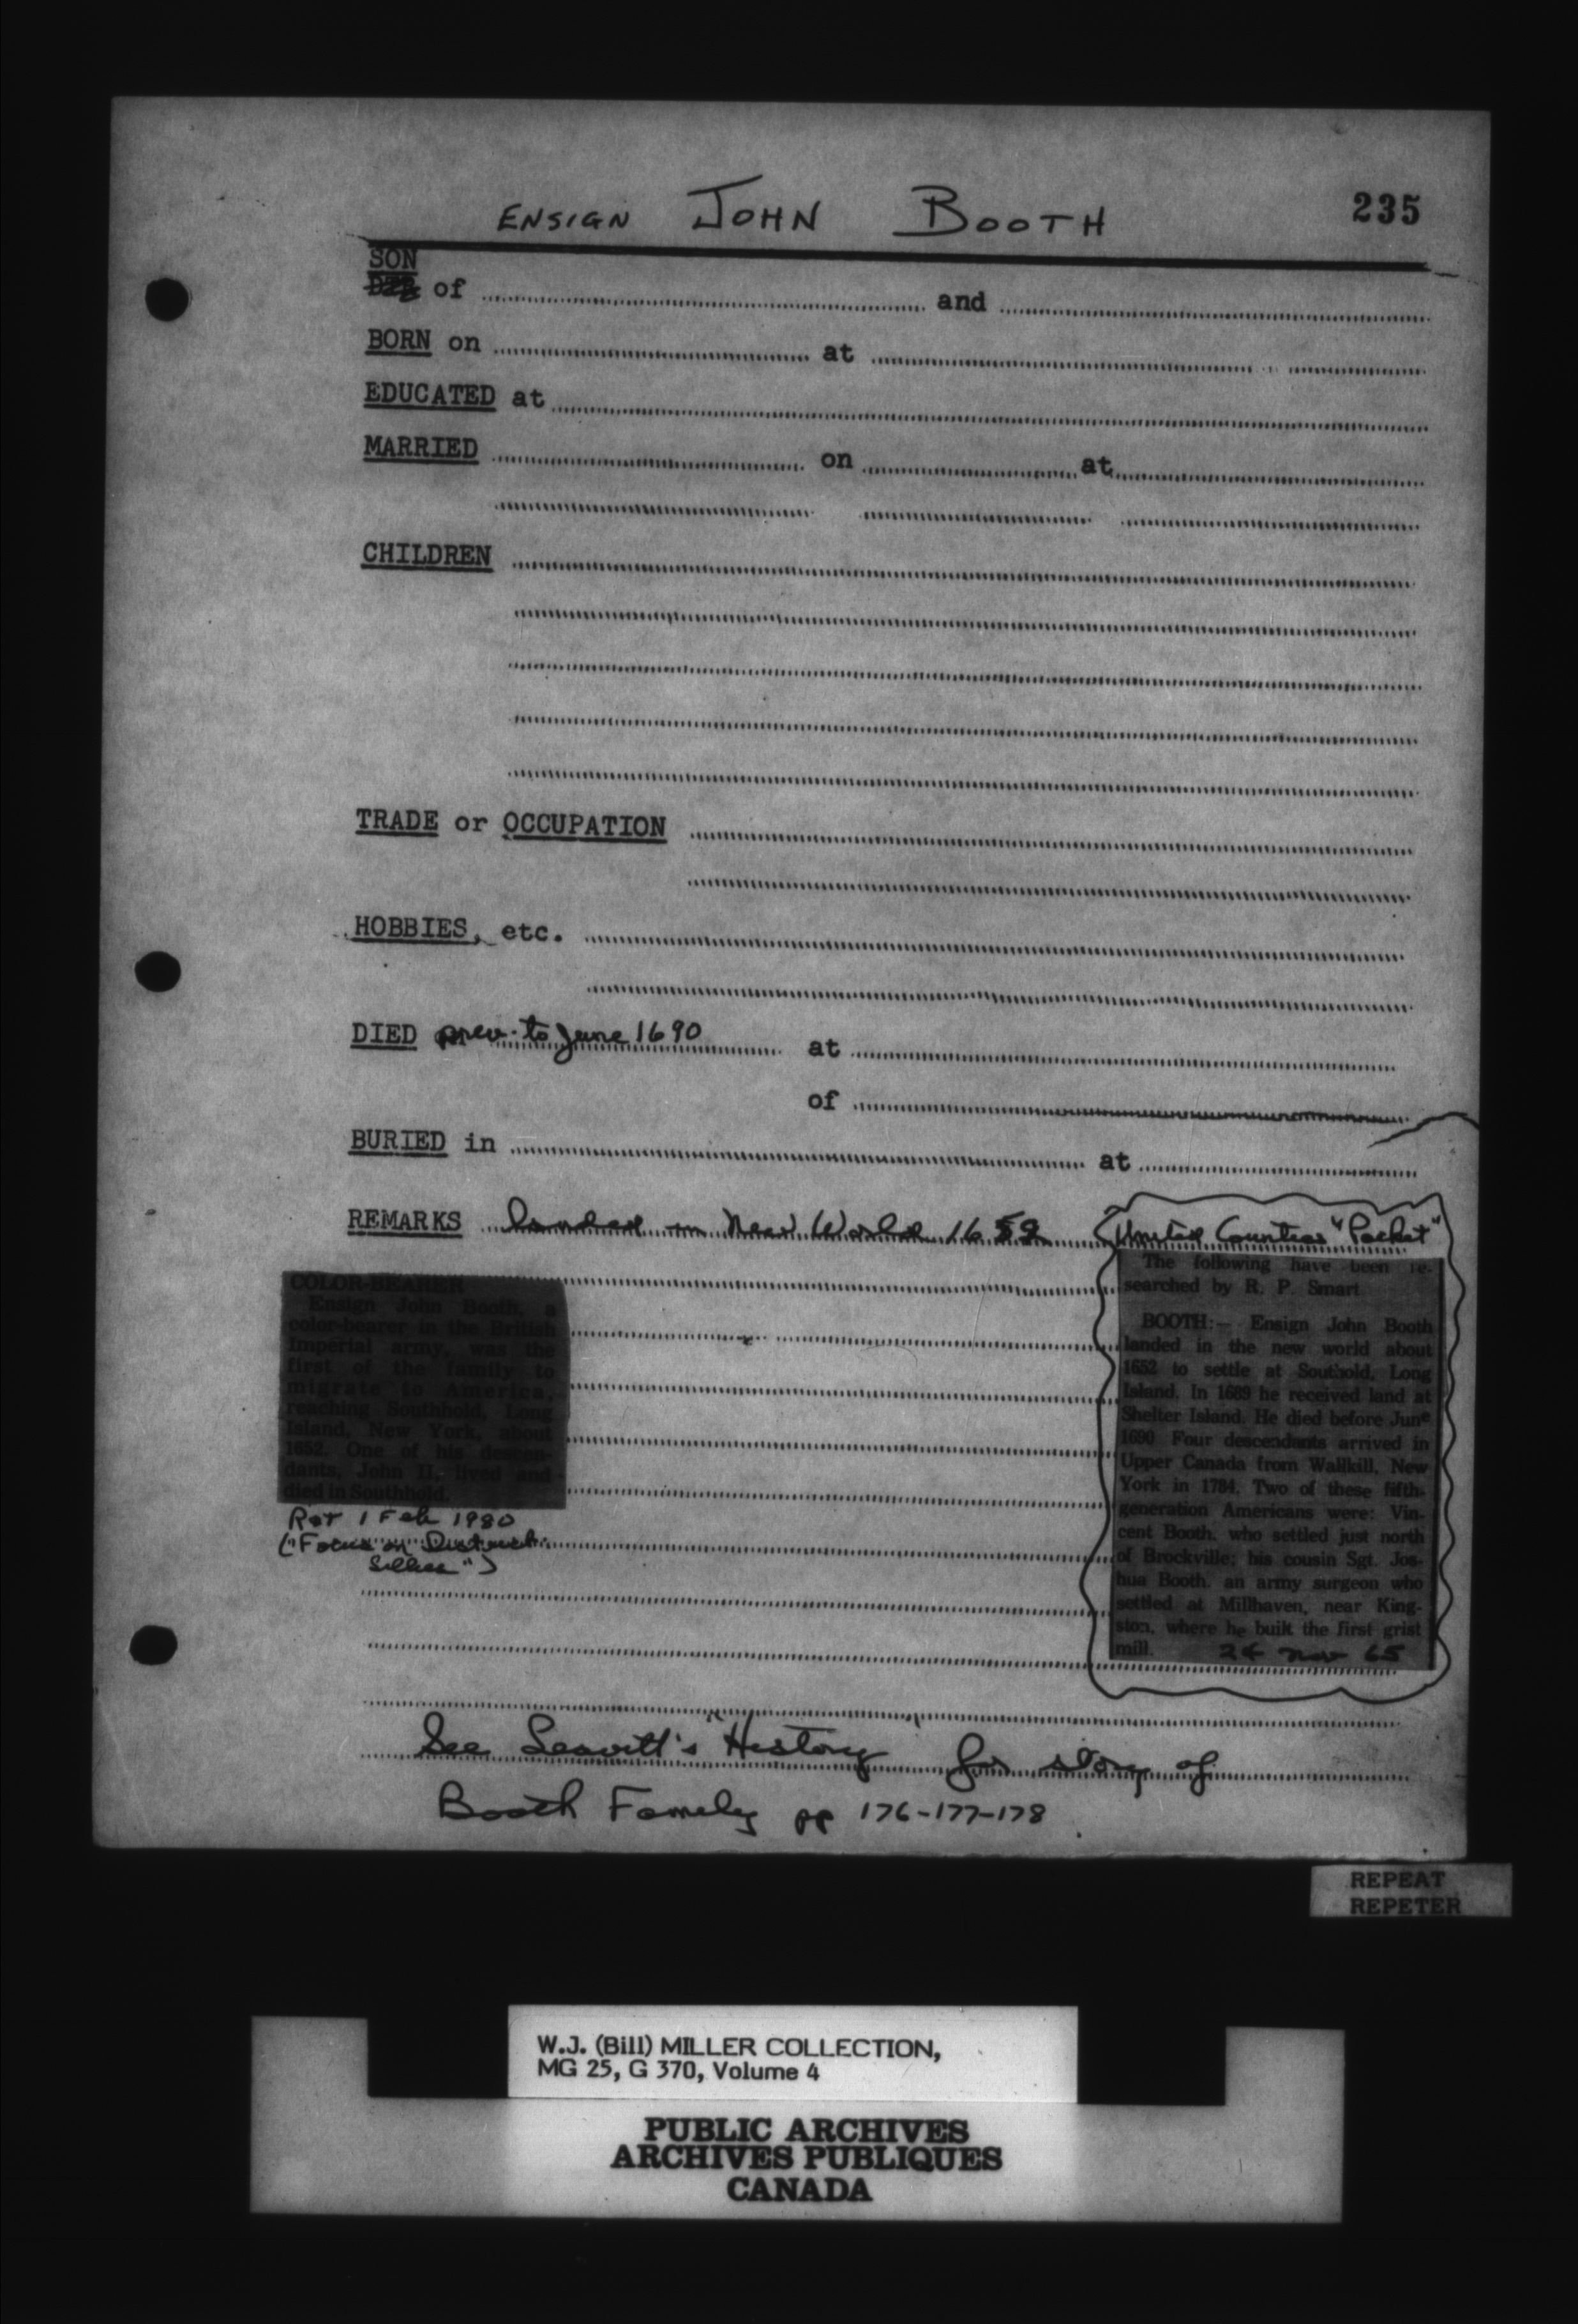 ENSIGN JOHN BOOTH 235
SON
of ... and ...
BORN on ... at ...
EDUCATED at ...
MARRIED ... on ... at ...
CHILDREN ...
TRADE or OCCUPATION ...
HOBBIES, etc. ...
DIED prev. to June 1690 at ...
of ...
BURIED in ... at ...
REMARKS landed in New World 1652
COLOR-BEARER
Ensign John Booth, a
color-bearer in the British
Imperial army, was the
first of the family to
migrate to America,
reaching Southhold, Long
Island, New York, about
1652. One of his descen-
dants, John II, lived and
died in Southhold.
R&T 1 Feb 1980
("Focus on
")
United Counties "Packet"
The following have been re-
searched by R. P. Smart.
BOOTH:— Ensign John Booth
landed in the new world about
1652 to settle at Southold, Long
Island. In 1689 he received land at
Shelter Island. He died before June
1690 Four descendants arrived in
Upper Canada from Wallkill, New
York in 1784. Two of these fifth-
generation Americans were: Vin-
cent Booth, who settled just north
of Brockville; his cousin Sgt. Jos-
hua Booth, an army surgeon who
settled at Millhaven, near King-
ston, where he built the first grist
mill. 24 Nov 65
See Leavitt's "History" for story of
Booth Family pp 176-177-178
REPEAT
REPETER
W.J. (Bill) MILLER COLLECTION,
MG 25, G 370, Volume 4
PUBLIC ARCHIVES
ARCHIVES PUBLIQUES
CANADA